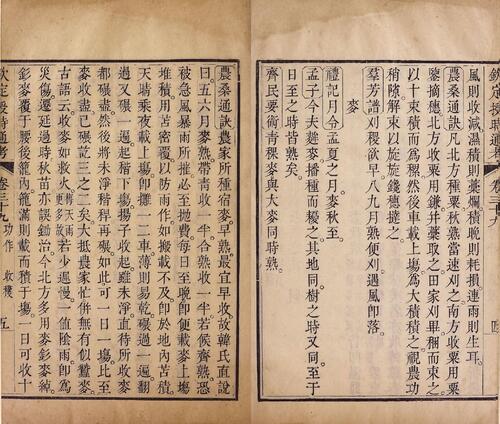 風則收減濕積則藁爛積晚則耗損連雨則生耳
農桑通訣凡北方種粟秋熟當速刈之南方收粟用粟
鑒摘穗北方收粟用鎌并藁取之田家刈畢稇而束之
以十束積而為穧然後車載上場為大積積之視農功
稍隙解束以旋旋錢穗撻之
羣芳譜刈稷欲早八九月熟便刈遇風即落
麥
禮記月令孟夏之月麥秋至
孟子今夫麰麥播種而耰之其地同樹之時又同至于
日至之時皆熟矣
齊民要術青稞麥與大麥同時熟
農桑通訣農家所種宿麥早熟最宜早收故韓氏直說
曰五六月麥熟帶青收一半合熟收一半若候齊熟恐
被急風暴雨所摧必至拋費每日至晚即便載麥上場
堆積用苫密覆以防雨作如搬載不及即於地內苫積
天晴乘夜載上場即攤一二車薄則易乾碾過一遍翻
過又碾一遍起稭下場揚子收起雖未淨直待所收麥
都碾盡然後將未淨稭稈再碾如此可一日一場比至
麥收盡已碾訖三之二矣大抵農家忙併無有似蠶麥
古語云收麥如救火若少遲慢一值陰雨即為
災傷遷延過時秋苗亦誤鋤治今北方多用麥釤麥綽
釤麥覆于腰後籠內籠滿則載而積于場一日可收十
欽定授時通考 卷三十九 功作 收穫 五